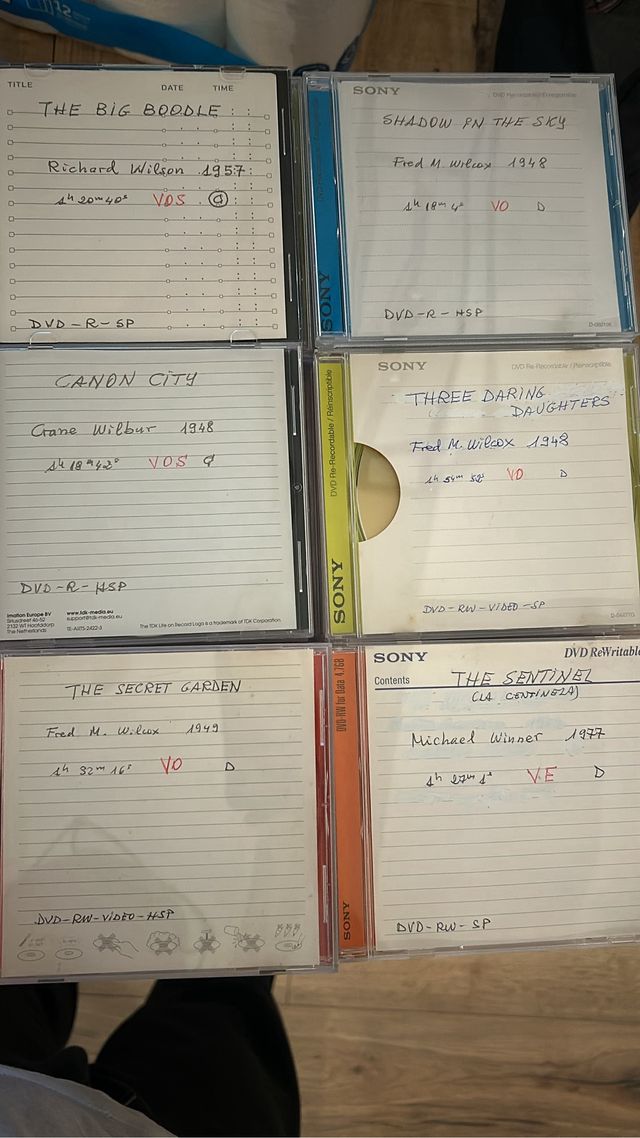 TITLE DATE TIME
THE BIG BOODLE
Richard Wilson 1957
1h 20m 40s VOS C
DVD-R-SP
SONY
DVD Recordable / Enregistrable
SHADOW IN THE SKY
Fred M. Wilcox 1948
1h 18m 4s VO D
DVD-R-HSP
SONY
CANON CITY
Crane Wilbur 1948
1h 18m 42s VOS C
DVD-R-HSP
Imation Europe BV
Siriusdreef 46-52
2132 WT Hoofddorp
The Netherlands
www.tdk-media.eu
support@tdk-media.eu
The TDK Life on Record Logo is a trademark of TDK Corporation
SONY
DVD Re-Recordable / Réinscriptible
THREE DARING
DAUGHTERS
Fred M. Wilcox 1948
1h 54m 52s VO D
DVD-RW-VIDEO-SP
DVD Re-Recordable / Réinscriptible
SONY
THE SECRET GARDEN
Fred M. Wilcox 1949
1h 32m 16s VO D
DVD-RW-VIDEO-HSP
SONY
DVD ReWritable
Contents
THE SENTINEL
(LA CENTINELA)
Michael Winner 1977
1h 27m 1s VE D
DVD-RW-SP
DVD-RW for Data 4.7GB
SONY